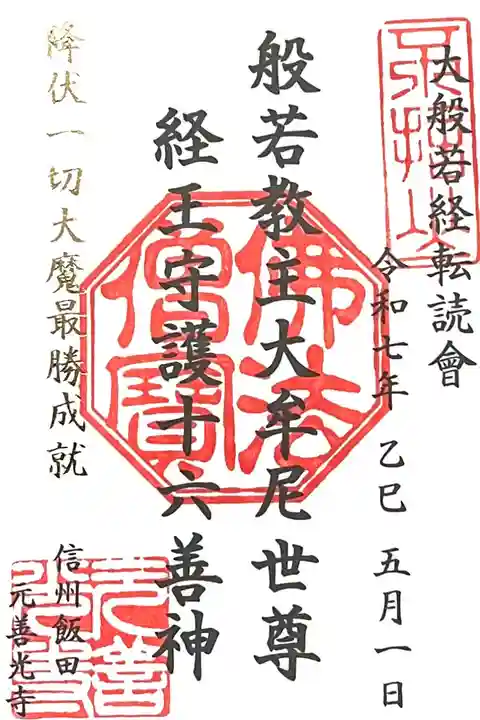 大般若経転読會
令和七年 乙巳 五月一日
般若教主大牟尼世尊
経王守護十六善神
降伏一切大魔最勝成就
信州飯田
元善光寺
奉拝
佛法
僧寶
元善
光寺